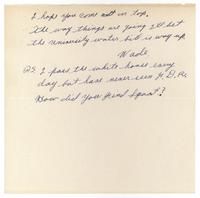 I hope you come out on top.
The way things are going I'll bet
the university water bill is way up.
Wade
P.S. I pass the white house every
day but have never seen G. D. Re
How did you find Spant?